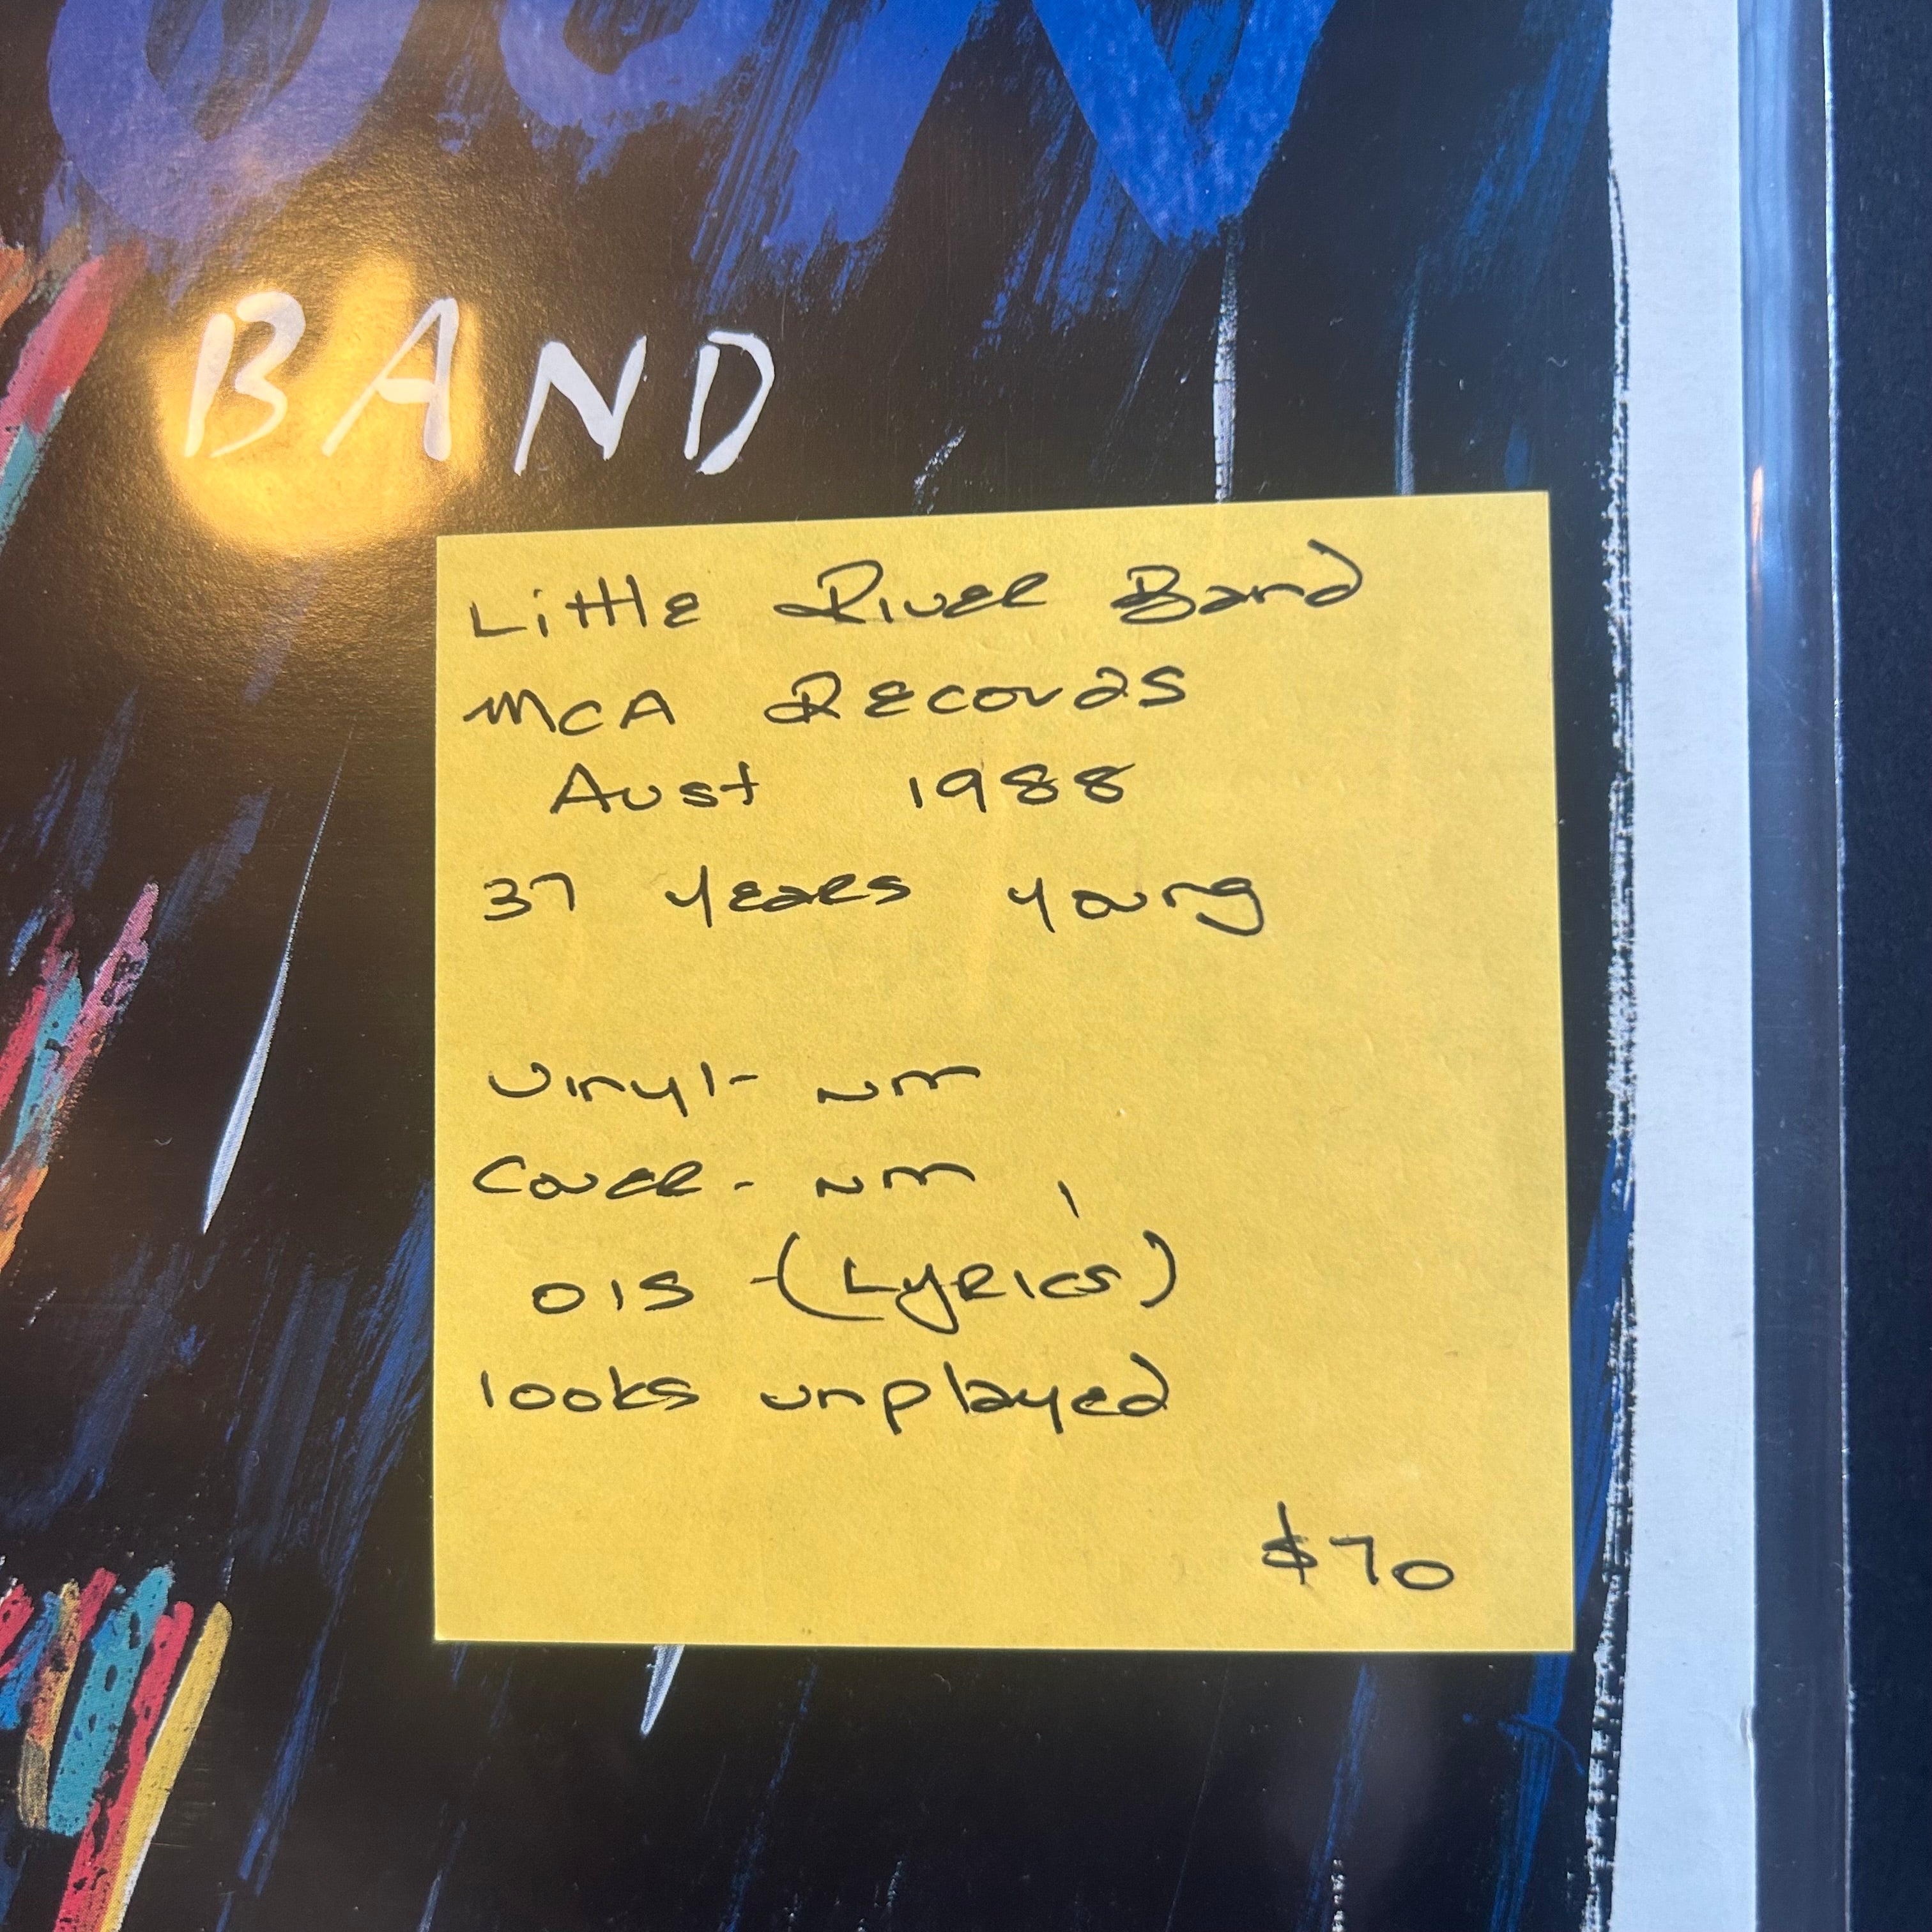 BAND
Little River Band
MCA Records
Aust 1988
37 years young
Vinyl- NM
Cover - NM
OIS - (Lyrics)
looks unplayed
$70